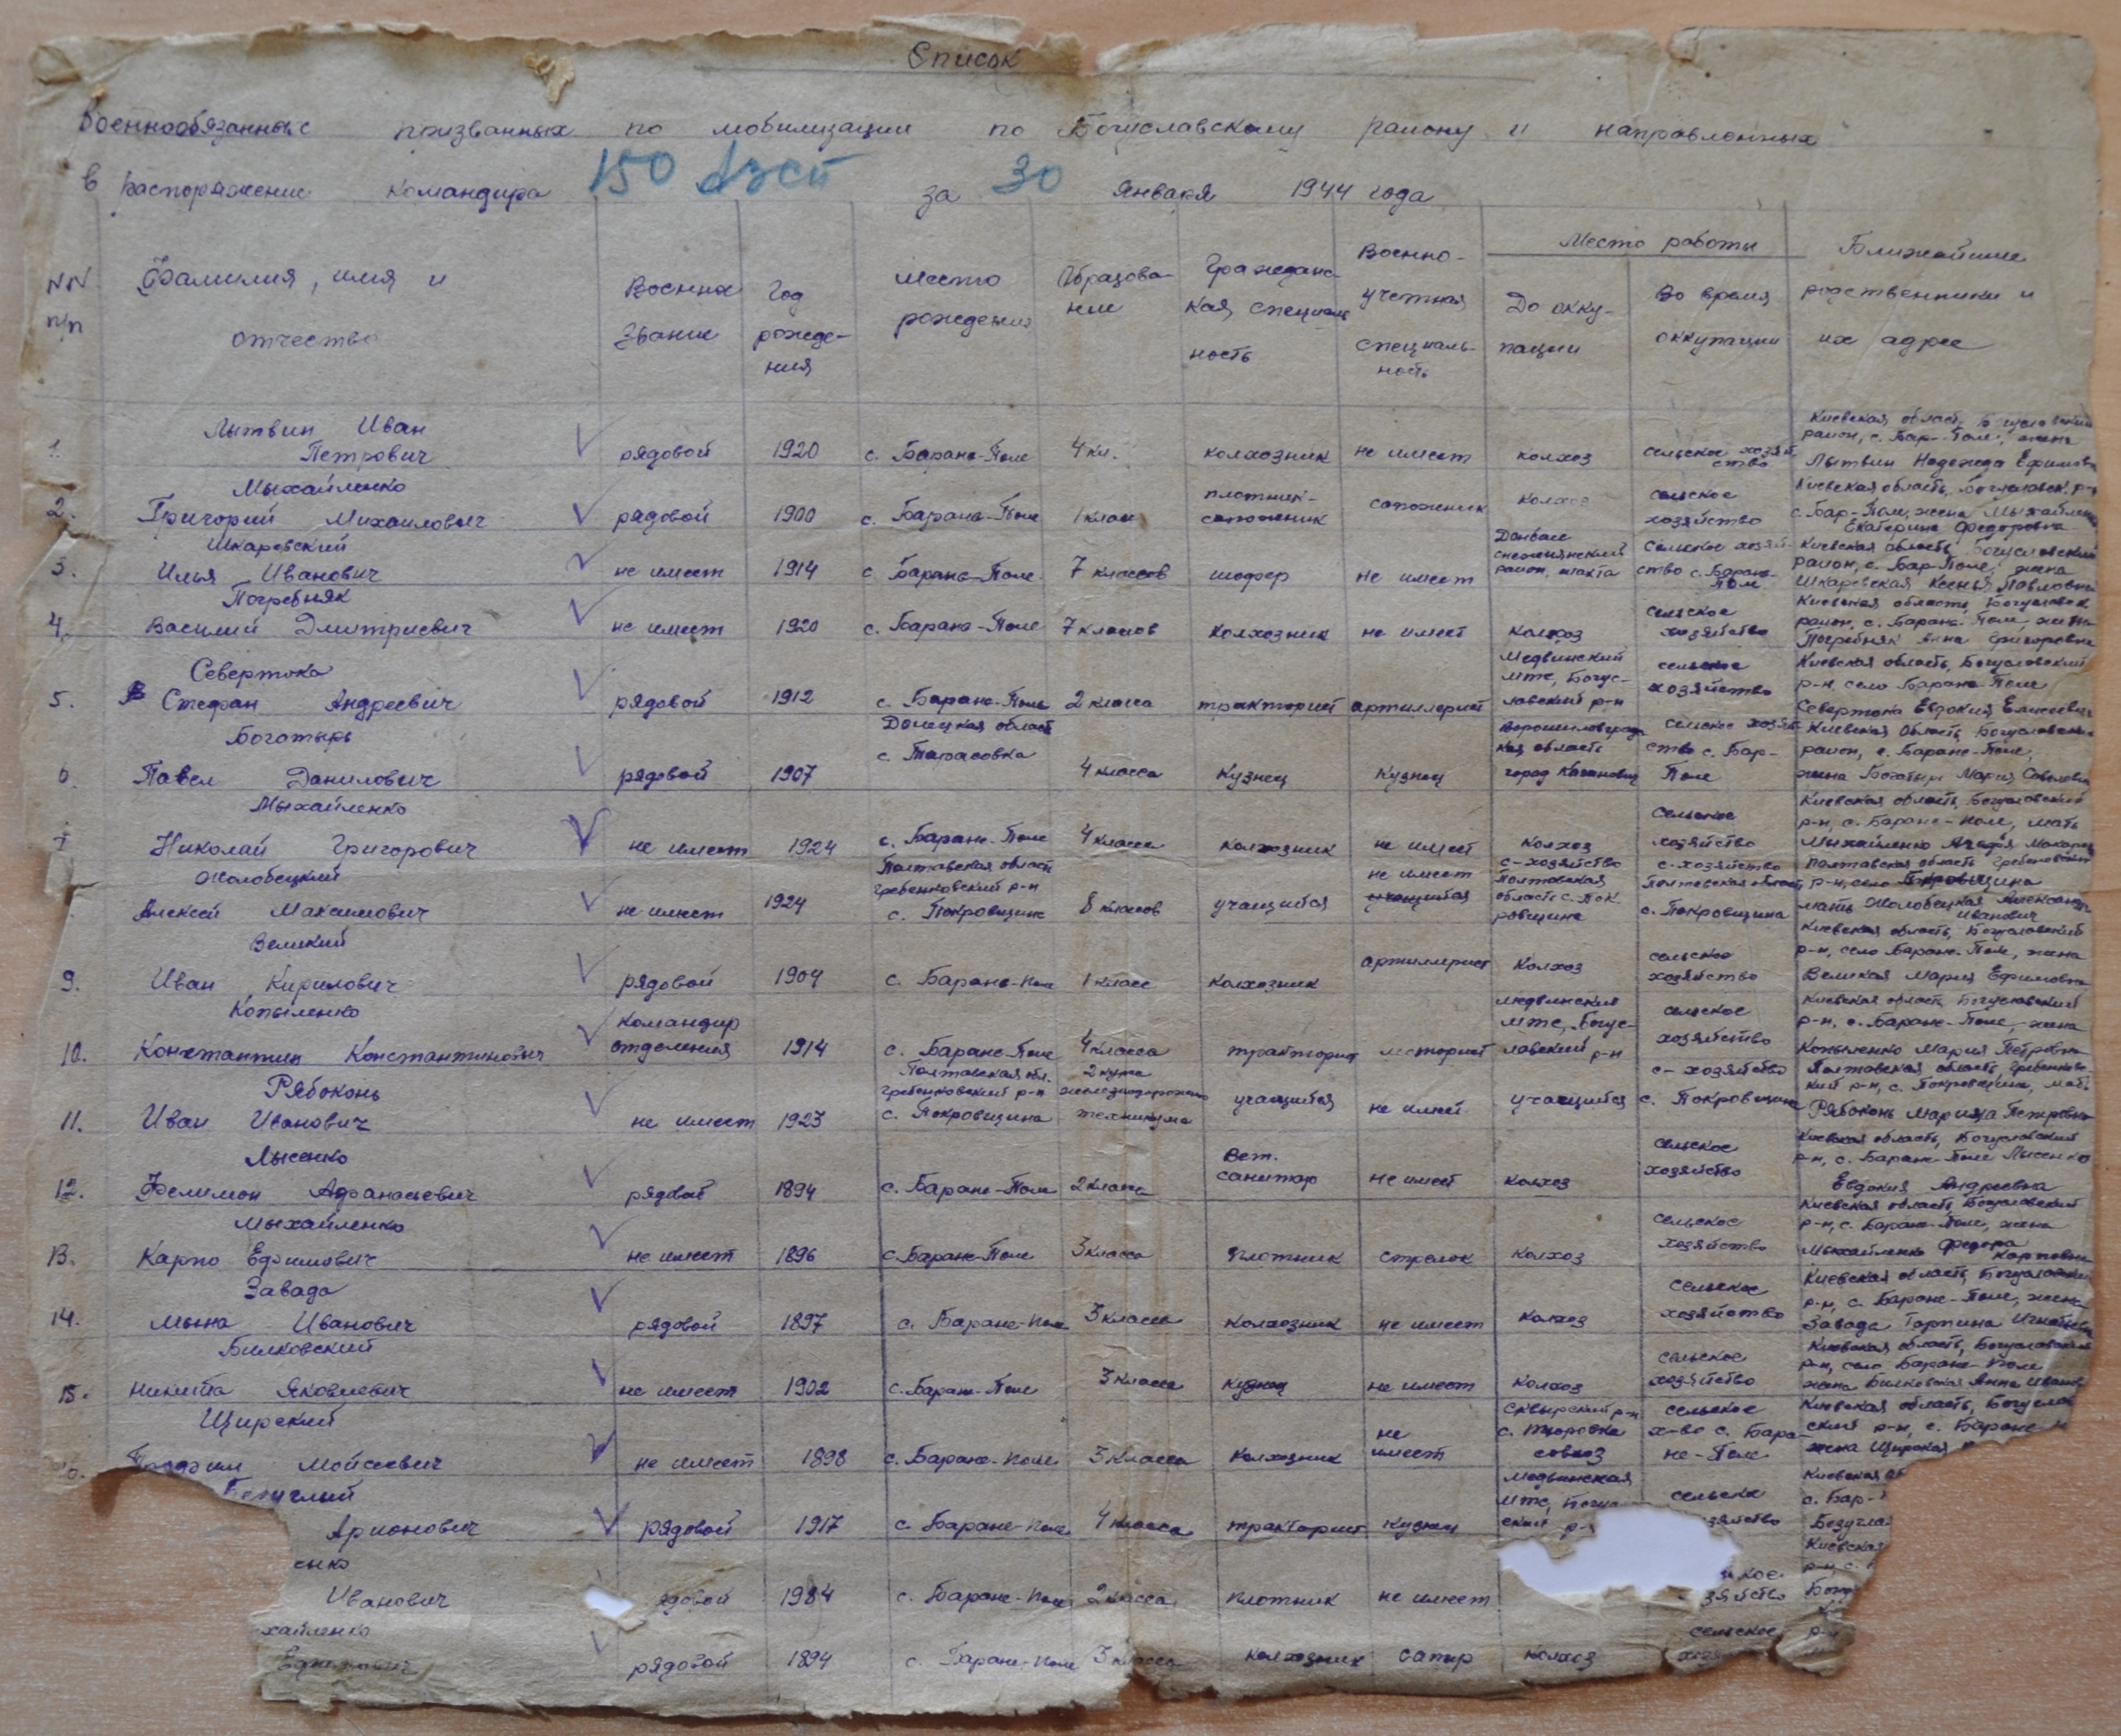 Список
Военнообязанных призванных по мобилизации по Богуславскому району и направленных
в распоряжение командира 150 АЗСП за 30 января 1944 года
NN п/п
Фамилия, имя и отчество
Военна звание
Год рожде-ния
Место рождения
Образова-ние
Гражданс-кая специаль-ность
Военно-учетная специаль-ность
Место работы
До окку-пации
Во время оккупации
Ближайшие родственники и их адрес
1. Лытвин Иван Петрович рядовой 1920 с. Баране-Поле 4 кл. колхозник не имеет колхоз сельское хозяйство Киевская область, Богуславский район, с. Бар-Поле, жена Лытвин Надежда Ефимовна
2. Мыхайленко Григорий Михайлович рядовой 1900 с. Баране-Поле 1 клас плотник-сапожник сапожник колхоз сельское хозяйство Киевская область, Богуславск. р-н с. Бар-Поле, жена Мыхайленко Екатерина Федоровна
3. Шкаревский Илья Иванович не имеет 1914 с Баране-Поле 7 классов шофер не имеет Донбасс снежнянский район, шахта сельское хозяй-ство с. Баране-Поле Киевская область Богуславский район, с. Бар-Поле, жена Шкаревская Ксенья Павловна
4. Погребняк Василий Дмитриевич не имеет 1920 с. Баране-Поле 7 классов колхозник не имеет колхоз сельское хозяйство Киевская область, Богуславск район, с. Баране-Поле, жена Погребняк Анна Григоровна
5. Севертока Стефан Андреевич рядовой 1912 с. Баране-Поле 2 класса тракторист артиллерист Медвинский мтс, Богус-лавский р-н сельское хозяйство Киевская область, Богуславский р-н, село Баране-Поле Севертока Евдокия Елисеевна
6. Богатырь Павел Данилович рядовой 1907 Донецкая область с. Тарасовка 4 класса кузнец кузнец Ворошиловградс кая область город Каганович сельское хозяй-ство с. Бар-Поле Киевская область Богуславский район, с. Баране-Поле, жена Богатырь Мария Савельевна
7 Мыхайленко Николай Григорович не имеет 1924 с. Баране-Поле 4 класса колхозник не имеет колхоз сельское хозяйство Киевская область, Богуславский р-н, с. Баране-Поле, мать Мыхайленко
Жолобецкий Алексей Максимович не имеет 1924 Полтавская область гребенковский р-н с. Покровщина 8 классов учащийся не имеет с-хозяйство Полтавская область с. Пок-ровщина с. хозяйство Полтавская область с. Покровщина Полтавская область Гребенковский р-н, село Покровщина мать Жолобецкая
9. Великий Иван Кирилович рядовой 1904 с. Баране-Поле 1 класс колхозник артиллерист колхоз сельское хозяйство Киевская область, Богуславский р-н, село Баране-Поле, жена Великая Мария Ефимовна
10. Копыленко Константин Константинович командир отделения 1914 с. Баране-Поле 4 класса тракторист медвинский мтс, Богус-лавский р-н сельское хозяйство Киевская область Богуславский р-н, с. Баране-Поле, жена Копыленко Мария Петровна
11. Рябоконь Иван Иванович не имеет 1923 Полтавская обл. гребенковский р-н с. Покровщина 2 курса железнодорожного техникума учащийся не имеет учащийся с-хозяйство с. Покровщина Полтавская область, Гребенковс-кий р-н, с. Покровщина, мать Рябоконь Петровна
12. Лысенко Фелимон Афанасьевич рядовой 1894 с. Баране-Поле 2 класса Вет. санитар не имеет колхоз сельское хозяйство Киевская область, Богуславский р-н, с. Баране-Поле Лысенко Евдокия Андреевна
13. Мыхайленко Карпо Ефимович не имеет 1896 с. Баране-Поле 3 класса плотник стрелок колхоз сельское хозяйство Киевская область, Богуславский р-н, с. Баране-Поле, жена Мыхайленко
14. Завада Мына Иванович рядовой 1897 с. Баране-Поле 3 класса колхозник не имеет колхоз сельское хозяйство Киевская область, Богуславский р-н, с. Баране-Поле, жена Завада Горпина
15. Билковский Никита Яковлевич не имеет 1902 с. Баране-Поле 3 класса кузнец не имеет колхоз сельское хозяйство Киевская область, Богуславский р-н, село Баране-Поле жена Билковская Анна
Щирский Мойсеевич не имеет 1898 с. Баране-Поле 3 класса колхозник не имеет Сквырский р-н совхоз сельское х-во с. Бара-не-Поле Киевская область, Богуслав ский р-н, с. Баране жена Щирская
Безуглый Арионович рядовой 1917 с. Баране-Поле 4 класса тракторист кузнец медвинская мтс, Богус ский р-н сельское зяйство Киевская с. Бар- Безугла
енко Иванович ядовой 1984 с. Баране-Поле 2 класса плотник не имеет кое зяйство Киевская р-н, с.
хайленко Ефимович рядовой 1894 с. Баране-Поле 3 класса колхозник сапер колхоз сельское р-н